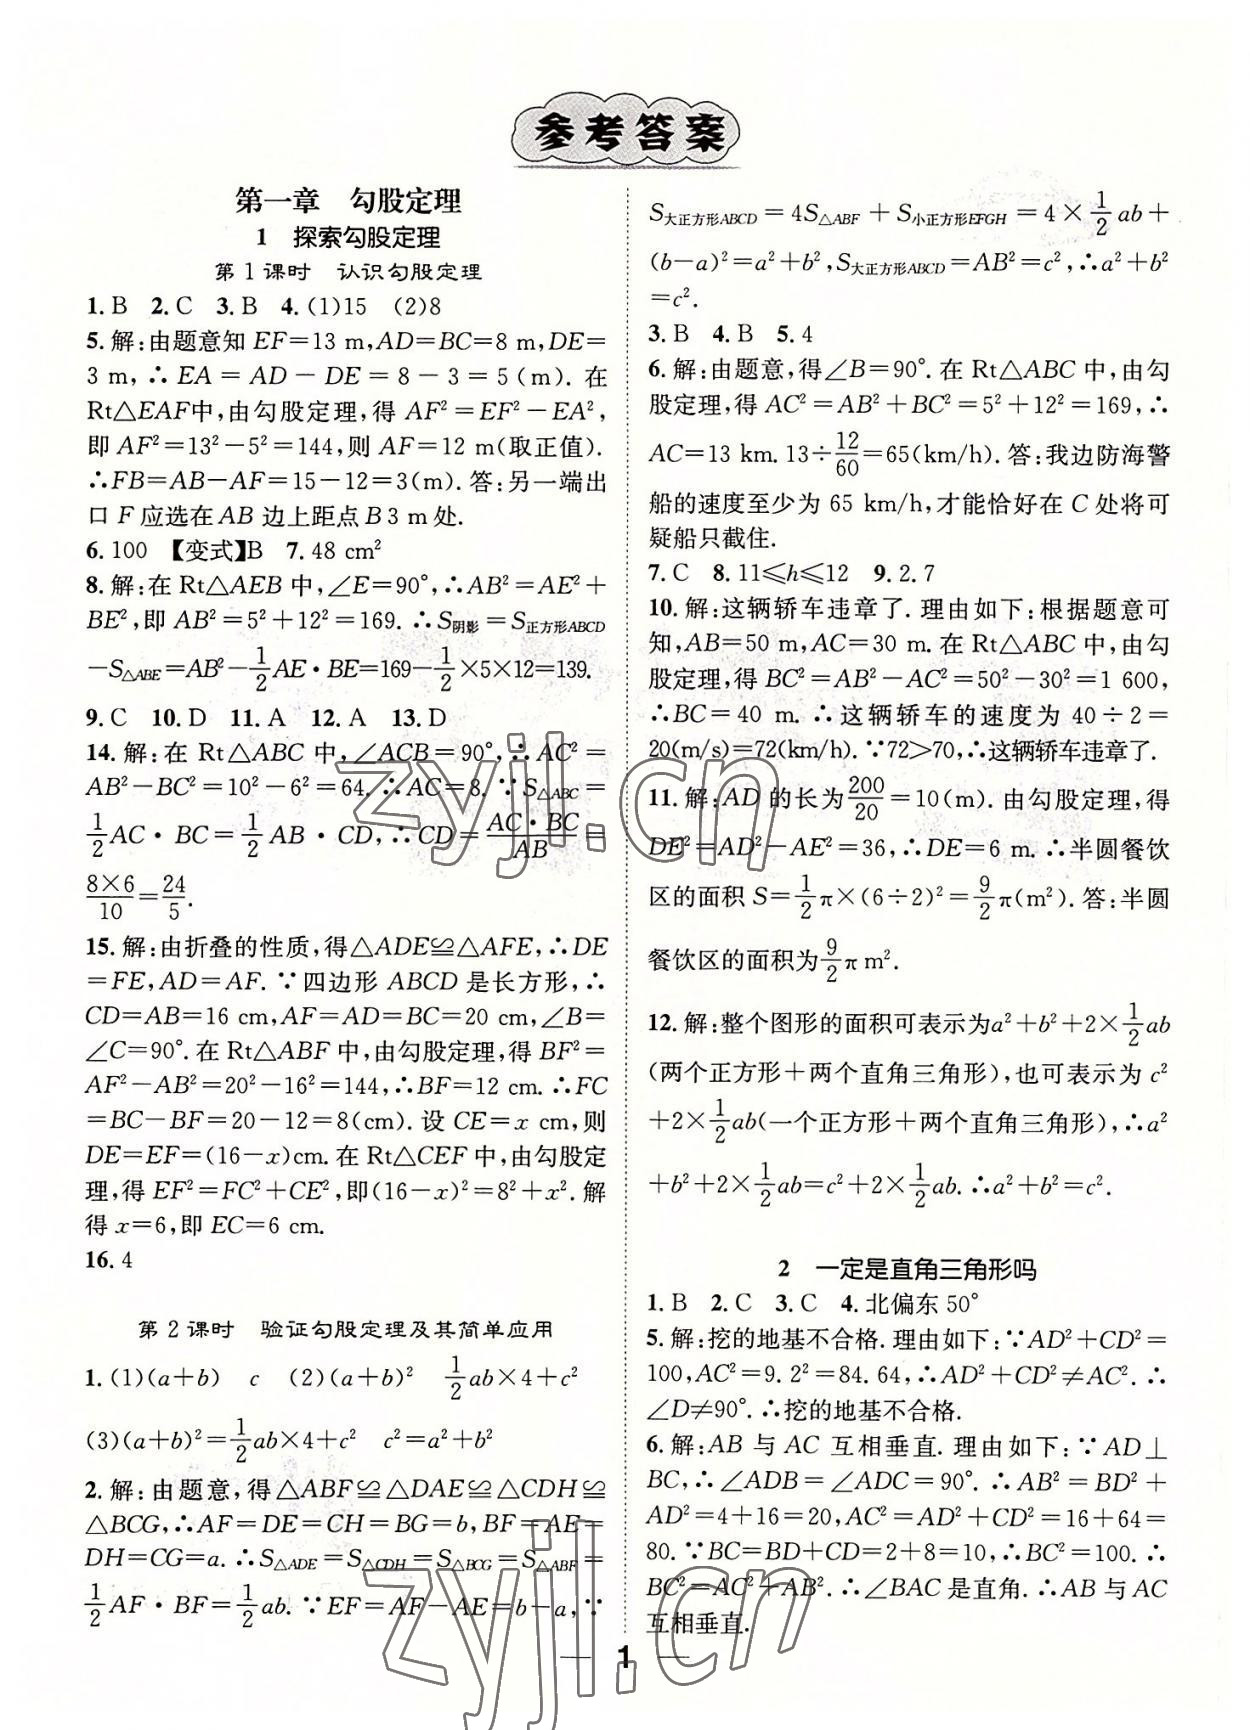 参考答案
第一章　勾股定理
1　探索勾股定理
第1课时　认识勾股定理
1. B　2. C　3. B　4. (1)15　(2)8
5. 解:由题意知 EF=13 m,AD=BC=8 m,DE=
3 m,∴EA=AD-DE=8-3=5(m). 在
Rt△EAF中,由勾股定理,得 AF²=EF²-EA²,
即 AF²=13²-5²=144,则 AF=12 m(取正值).
∴FB=AB-AF=15-12=3(m). 答:另一端出
口 F 应选在 AB 边上距点 B 3 m处.
6. 100　【变式】B　7. 48 cm²
8. 解:在 Rt△AEB 中,∠E=90°,∴AB²=AE²+
BE²,即 AB²=5²+12²=169. ∴S阴影=S正方形ABCD
-S△ABE=AB²-1/2AE·BE=169-1/2×5×12=139.
9. C　10. D　11. A　12. A　13. D
14. 解:在 Rt△ABC 中,∠ACB=90°,∴AC²=
AB²-BC²=10²-6²=64. ∴AC=8. ∵S△ABC=
1/2AC·BC=1/2AB·CD,∴CD=AC·BC/AB=
8×6/10=24/5.
15. 解:由折叠的性质,得△ADE≌△AFE,∴DE
=FE,AD=AF. ∵四边形 ABCD 是长方形,∴
CD=AB=16 cm,AF=AD=BC=20 cm,∠B=
∠C=90°. 在 Rt△ABF 中,由勾股定理,得 BF²=
AF²-AB²=20²-16²=144,∴BF=12 cm. ∴FC
=BC-BF=20-12=8(cm). 设 CE=x cm,则
DE=EF=(16-x)cm. 在 Rt△CEF 中,由勾股定
理,得 EF²=FC²+CE²,即(16-x)²=8²+x². 解
得 x=6,即 EC=6 cm.
16. 4
第2课时　验证勾股定理及其简单应用
1. (1)(a+b)　c　(2)(a+b)²　1/2ab×4+c²
(3)(a+b)²=1/2ab×4+c²　c²=a²+b²
2. 解:由题意,得△ABF≌△DAE≌△CDH≌
△BCG,∴AF=DE=CH=BG=b,BF=AE=
DH=CG=a. ∴S△ADE=S△CDH=S△BCG=S△ABF=
1/2AF·BF=1/2ab. ∵EF=AF-AE=b-a,∵
S大正方形ABCD=4S△ABF+S小正方形EFGH=4×1/2ab+
(b-a)²=a²+b²,S大正方形ABCD=AB²=c²,∴a²+b²
=c².
3. B　4. B　5. 4
6. 解:由题意,得∠B=90°. 在 Rt△ABC 中,由勾
股定理,得 AC²=AB²+BC²=5²+12²=169,∴
AC=13 km. 13÷12/60=65(km/h). 答:我边防海警
船的速度至少为 65 km/h,才能恰好在 C 处将可
疑船只截住.
7. C　8. 11≤h≤12　9. 2.7
10. 解:这辆轿车违章了. 理由如下:根据题意可
知,AB=50 m,AC=30 m. 在 Rt△ABC 中,由勾
股定理,得 BC²=AB²-AC²=50²-30²=1 600,
∴BC=40 m. ∴这辆轿车的速度为 40÷2=
20(m/s)=72(km/h). ∵72>70,∴这辆轿车违章了.
11. 解:AD 的长为200/20=10(m). 由勾股定理,得
DE²=AD²-AE²=36,∴DE=6 m. ∴半圆餐饮
区的面积 S=1/2π×(6÷2)²=9/2π(m²). 答:半圆
餐饮区的面积为9/2π m².
12. 解:整个图形的面积可表示为a²+b²+2×1/2ab
(两个正方形+两个直角三角形),也可表示为 c²
+2×1/2ab(一个正方形+两个直角三角形),∴a²
+b²+2×1/2ab=c²+2×1/2ab. ∴a²+b²=c².
2　一定是直角三角形吗
1. B　2. C　3. C　4. 北偏东 50°
5. 解:挖的地基不合格. 理由如下:∵AD²+CD²=
100,AC²=9.2²=84.64,∴AD²+CD²≠AC². ∴
∠D≠90°. ∴挖的地基不合格.
6. 解:AB 与 AC 互相垂直. 理由如下:∵AD⊥
BC,∴∠ADB=∠ADC=90°. ∴AB²=BD²+
AD²=4+16=20,AC²=AD²+CD²=16+64=
80. ∵BC=BD+CD=2+8=10,∴BC²=100. ∴
BC²=AC²+AB². ∴∠BAC 是直角. ∴AB 与 AC
互相垂直.
1
zyjl.cn
zyjl.cn